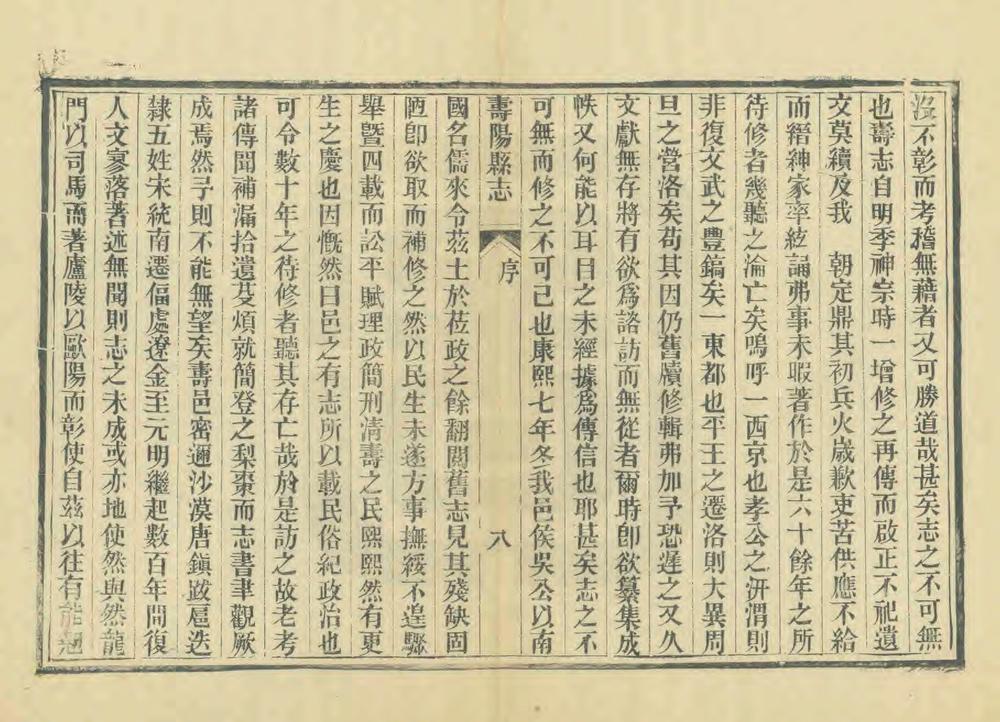 沒不彰而考稽無藉者又可勝道哉甚矣志之不可無
也壽志自明季神宗時一增修之再傳而啟正不祀遺
文莫續及我　朝定鼎其初兵火歲歉吏苦供應不給
而縉紳家率絃誦弗事未暇著作於是六十餘年之所
待修者幾聽之淪亡矣嗚呼一西京也孝公之汧渭則
非復文武之豐鎬矣一東都也平王之遷洛則大異周
旦之營洛矣苟其因仍舊牘修輯弗加予恐遲之又久
文獻無存將有欲爲諮訪而無從者爾時卽欲纂集成
帙又何能以耳目之未經據爲傳信也耶甚矣志之不
可無而修之不可已也康熙七年冬我邑侯吳公以南
壽陽縣志　序　八
國名儒來令茲土於莅政之餘翻閱舊志見其殘缺固
陋卽欲取而補修之然以民生未遂方事撫綏不遑驟
舉暨四載而訟平賦理政簡刑清壽之民熙熙然有更
生之慶也因慨然曰邑之有志所以載民俗紀政治也
可令數十年之待修者聽其存亡哉於是訪之故老考
諸傳聞補漏拾遺芟煩就簡登之梨棗而志書聿觀厥
成焉然予則不能無望矣壽邑密邇沙漠唐鎭跋扈迭
隸五姓宋統南遷偪處遼金至元明繼起數百年間復
人文寥落著述無聞則志之未成或亦地使然與然龍
門以司馬而著廬陵以歐陽而彰使自茲以往有能